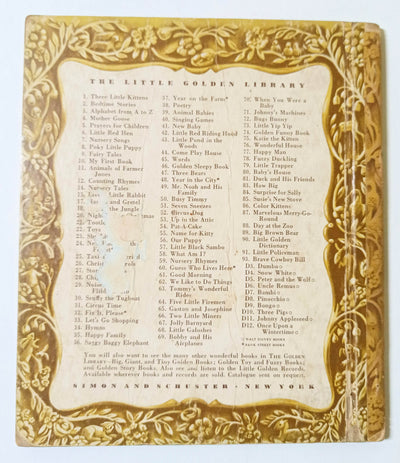 THE LITTLE GOLDEN LIBRARY
1. Three Little Kittens
2. Bedtime Stories
3. Alphabet from A to Z
4. Mother Goose
5. Prayers for Children
6. Little Red Hen
7. Nursery Songs
8. Poky Little Puppy
9. Fairy Tales
10. My First Book
11. Animals of Farmer
Jones
12. Counting Rhymes
14. Nursery Tales
15. Rabbit
17. Gretel
18. the Jungle
20.
21. Toy
22.
24.
25. Taxi
26. Christ
27. Sto
28.
29. Noise
30. Scuffy the Tugboat
31. Circus Time
32. Fix It, Please*
33. Let's Go Shopping
34. Hymns
35. Happy Family
36. Saggy Baggy Elephant
37. Year on the Farm*
38. Poetry
39. Animal Babies
40. Singing Games
41. New Baby
42. Little Red Riding Hood
43. Little Pond in the
Woods
44. Come Play House
45. Words
46. Golden Sleepy Book
47. Three Bears
48. Year in the City*
49. Mr. Noah and His
Family
50. Busy Timmy
51. Seven Sneezes
52. Circus Dog
53. Up in the Attic
54. Pat-A-Cake
55. Name for Kitty
56. Our Puppy
57. Little Black Sambo
58. What Am I?
59. Nursery Rhymes
60. Guess Who Lives Here*
61. Good Morning
62. We Like to Do Things
63. Tommy's Wonderful
Rides
64. Five Little Firemen
65. Gaston and Josephine
66. Two Little Miners
67. Jolly Barnyard
68. Little Galoshes
69. Bobby and His
Airplanes
70. When You Were a
Baby
71. Johnny's Machines
72. Bugs Bunny
73. Little Yip Yip
74. Golden Funny Book
75. Katie the Kitten
76. Wonderful House
77. Happy Man
78. Fuzzy Duckling
79. Little Trapper
80. Baby's House
81. Duck and His Friends
83. How Big
84. Surprise for Sally
85. Susie's New Stove
86. Color Kittens
87. Marvelous Merry-Go-
Round
88. Day at the Zoo
89. Big Brown Bear
90. Little Golden
Dictionary
91. Little Policeman
93. Brave Cowboy Bill
D3. Dumbo°
D4. Snow White°
D5. Peter and the Wolf°
D6. Uncle Remus°
D7. Bambi°
D8. Pinocchio°
D9. Bongo°
D10. Three Pigs°
D11. Johnny Appleseed°
D12. Once Upon a
Wintertime°
° WALT DISNEY BOOKS
* BANK STREET BOOKS
You will also want to see the many other wonderful books in THE GOLDEN
LIBRARY—Big, Giant, and Tiny Golden Books; Golden Toy and Fuzzy Books;
and Golden Story Books. Also see and listen to the Little Golden Records.
Available wherever books and records are sold. Catalogue sent on request.
SIMON AND SCHUSTER · NEW YORK